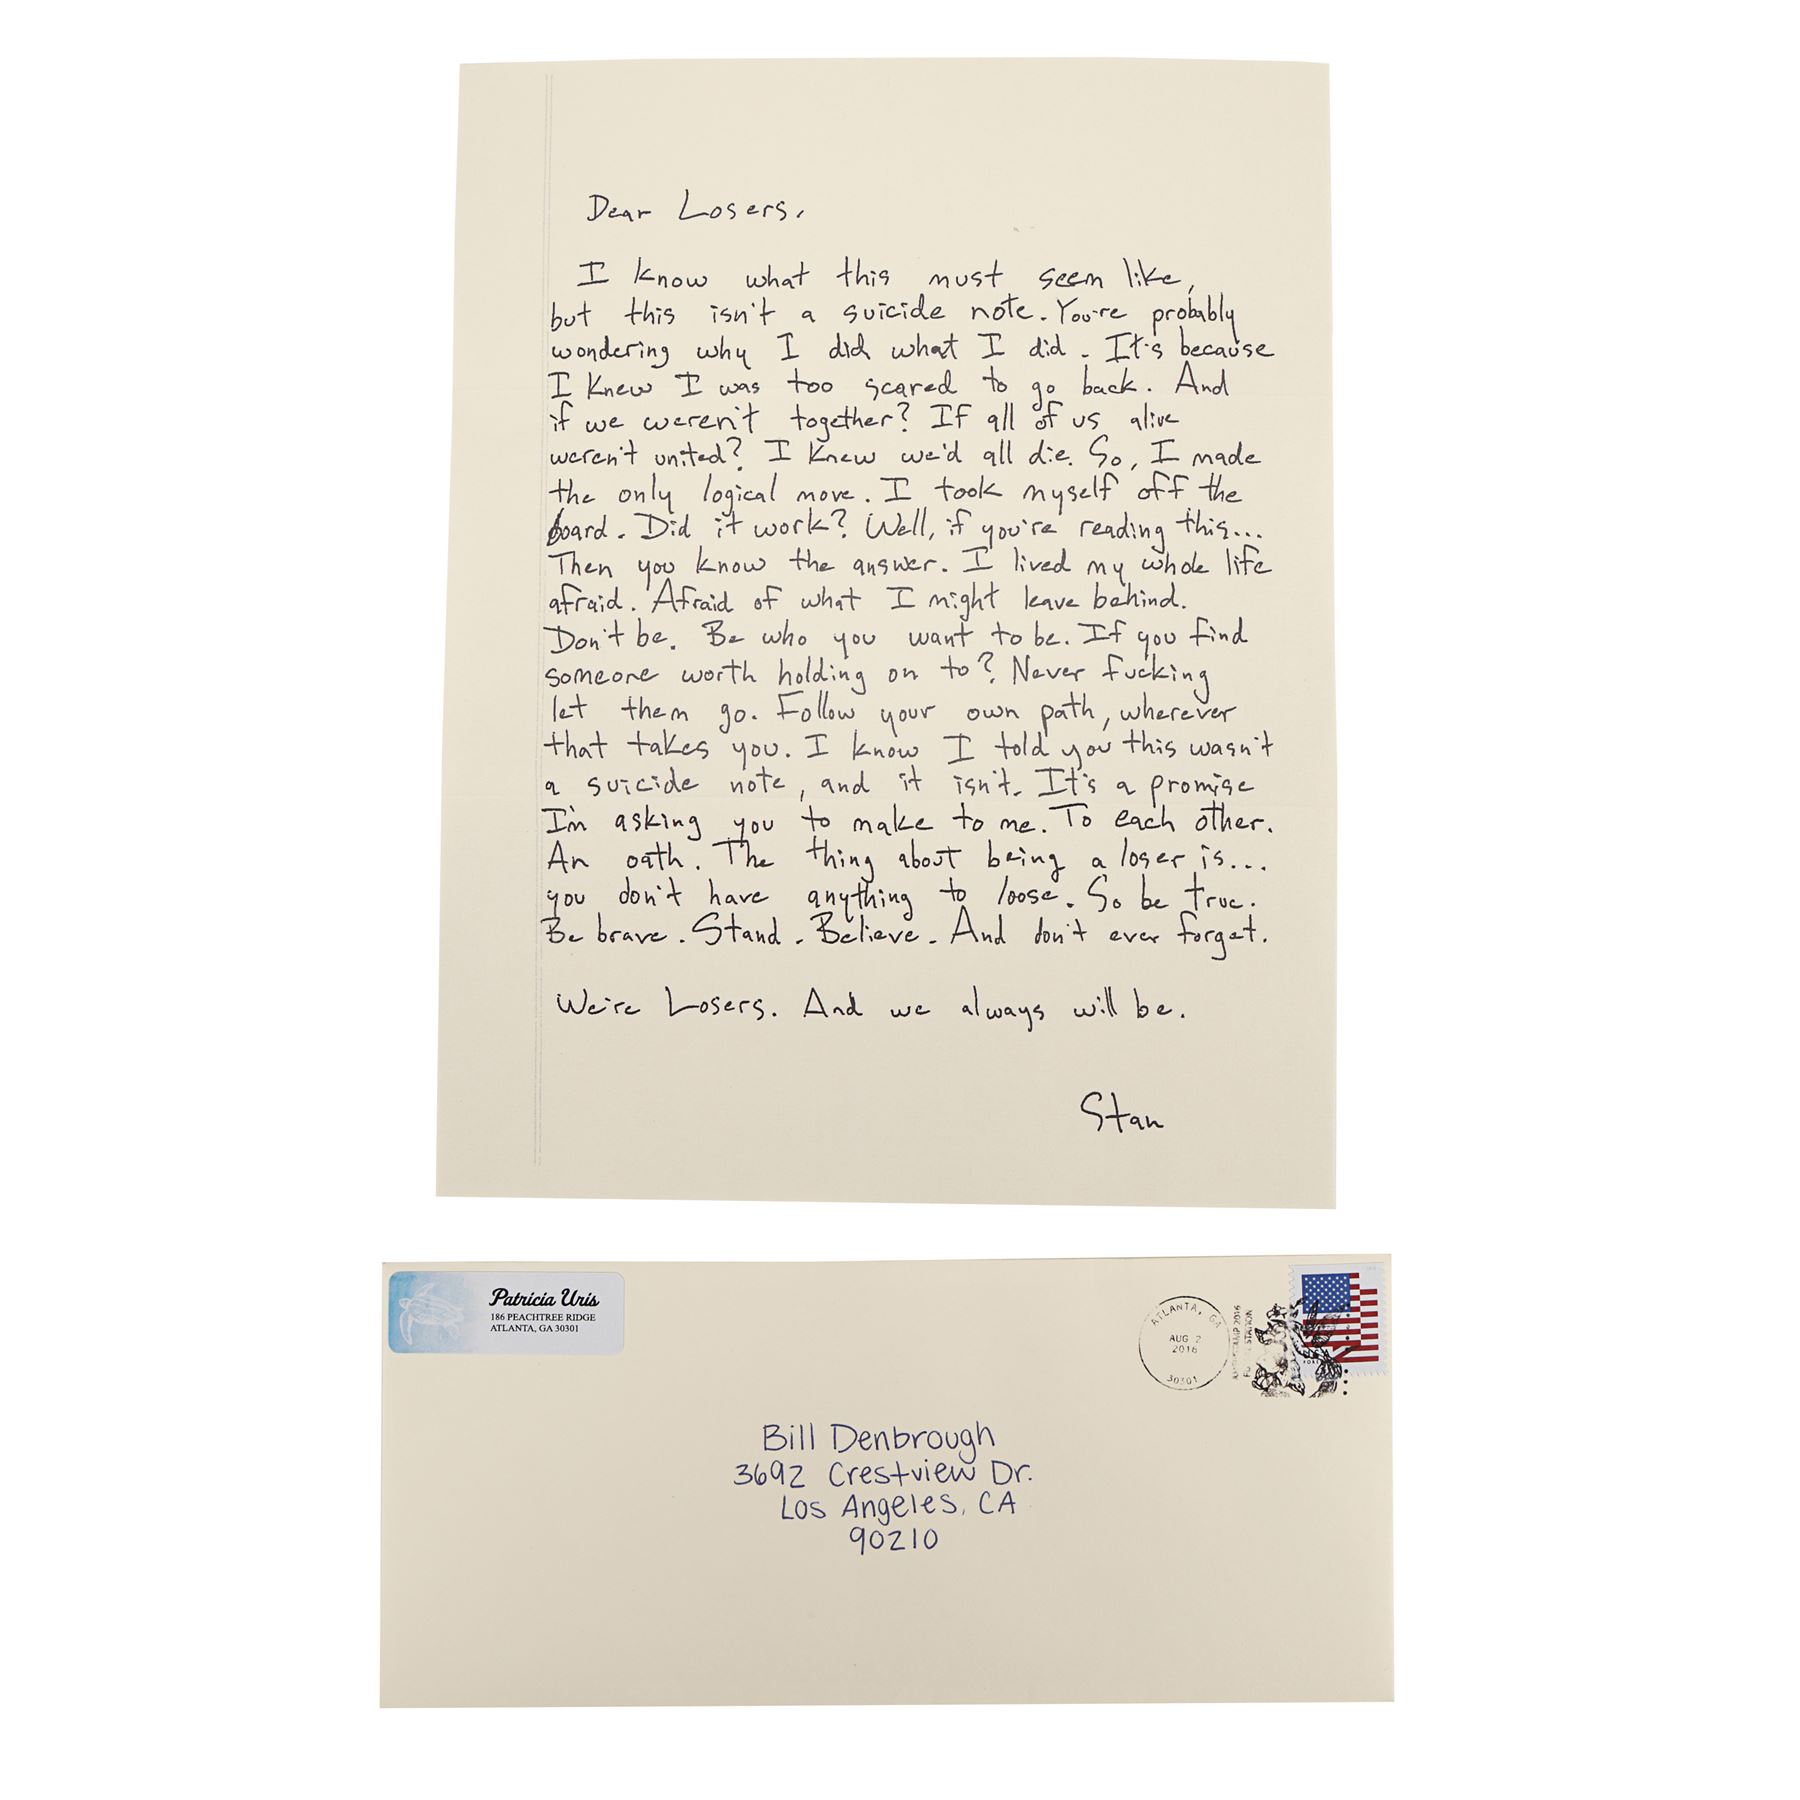 Dear Losers,
I know what this must seem like,
but this isn't a suicide note. You're probably
wondering why I did what I did. It's because
I knew I was too scared to go back. And
if we weren't together? If all of us alive
weren't united? I knew we'd all die. So, I made
the only logical move. I took myself off the
board. Did it work? Well, if you're reading this...
Then you know the answer. I lived my whole life
afraid. Afraid of what I might leave behind.
Don't be. Be who you want to be. If you find
someone worth holding on to? Never fucking
let them go. Follow your own path, wherever
that takes you. I know I told you this wasn't
a suicide note, and it isn't. It's a promise
I'm asking you to make to me. To each other.
An oath. The thing about being a loser is...
you don't have anything to loose. So be true.
Be brave. Stand. Believe. And don't ever forget.
We're Losers. And we always will be.
Stan
Patricia Uris
186 PEACHTREE RIDGE
ATLANTA, GA 30301
ATLANTA, GA
AUG 2
2016
30301
2016
STATION
Bill Denbrough
3692 Crestview Dr.
Los Angeles, CA
90210